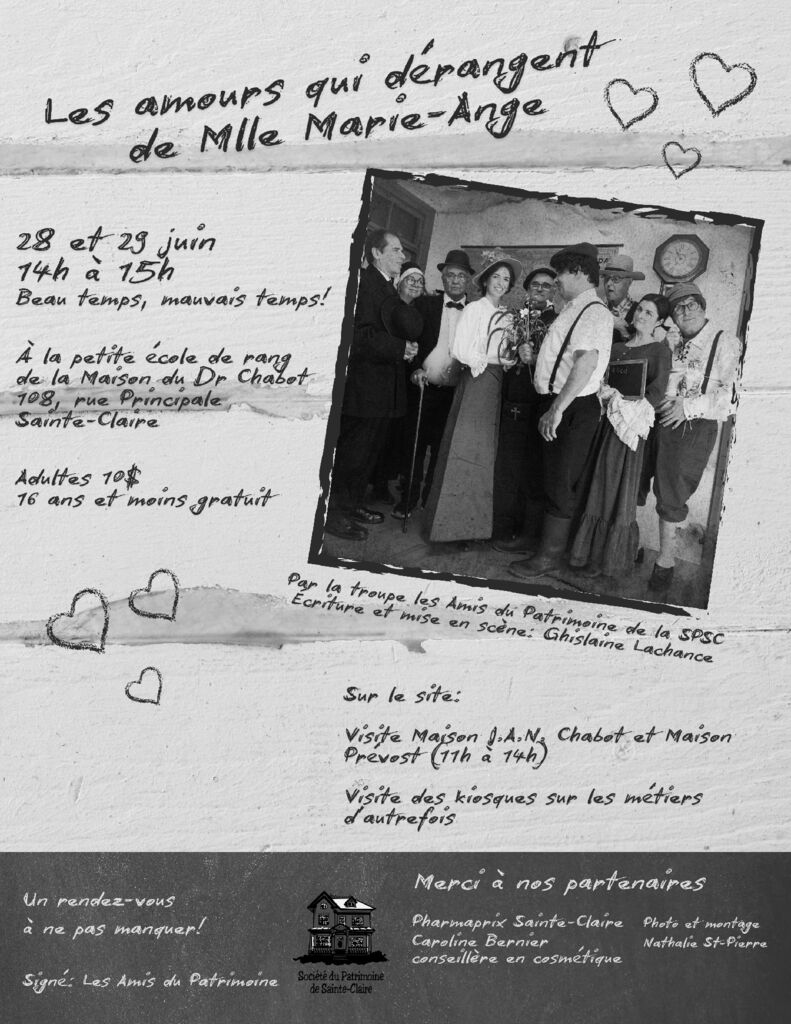 Les amours qui dérangent
de Mlle Marie-Ange
28 et 29 juin
14h à 15h
Beau temps, mauvais temps!
À la petite école de rang
de la Maison du Dr Chabot
108, rue Principale
Sainte-Claire
Adultes 10$
16 ans et moins gratuit
Par la troupe les Amis du Patrimoine de la SPSC
Écriture et mise en scène: Ghislaine Lachance
Sur le site:
Visite Maison J.A.N. Chabot et Maison
Prévost (11h à 14h)
Visite des kiosques sur les métiers
d'autrefois
Un rendez-vous
à ne pas manquer!
Signé: Les Amis du Patrimoine
Société du Patrimoine
de Sainte-Claire
Merci à nos partenaires
Pharmaprix Sainte-Claire
Caroline Bernier
conseillère en cosmétique
Photo et montage
Nathalie St-Pierre